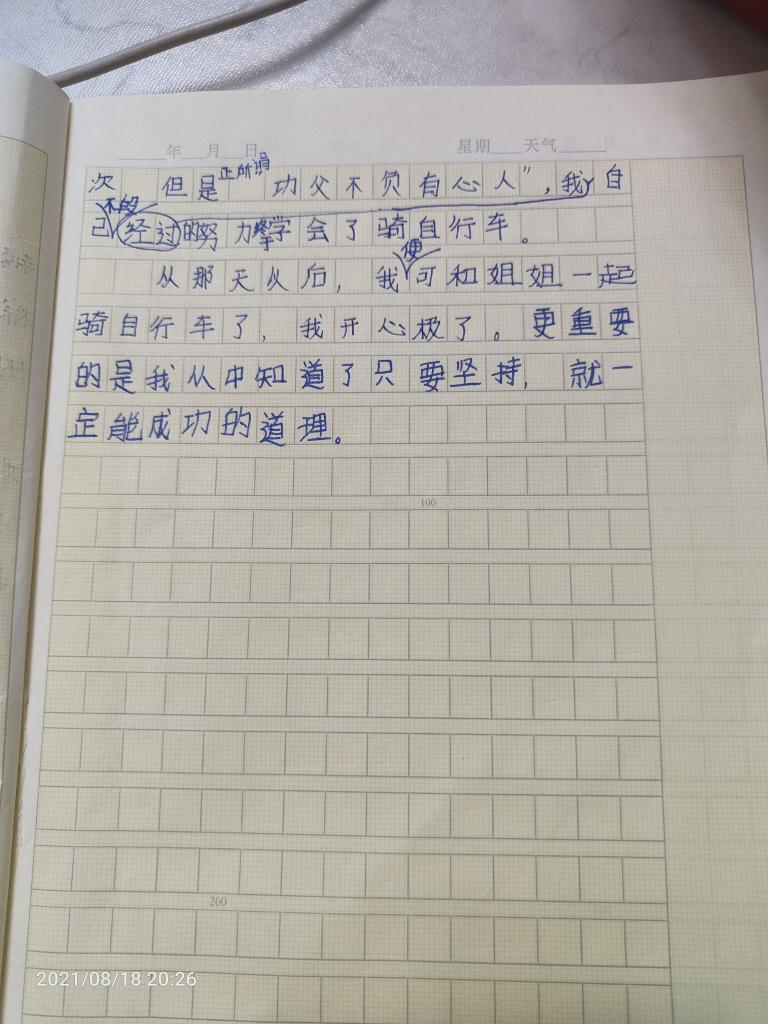 ____年__月__日 星期____天气______
次 但是正所谓 功父不负有心人”，我自
己不段经过的努力终于学会了骑自行车。
从那天火后，我便可和姐姐一起
骑自行车了，我开心极了。更重要
的是我从中知道了只要坚持，就一
定能成功的道理。
100
200
2021/08/18 20:26